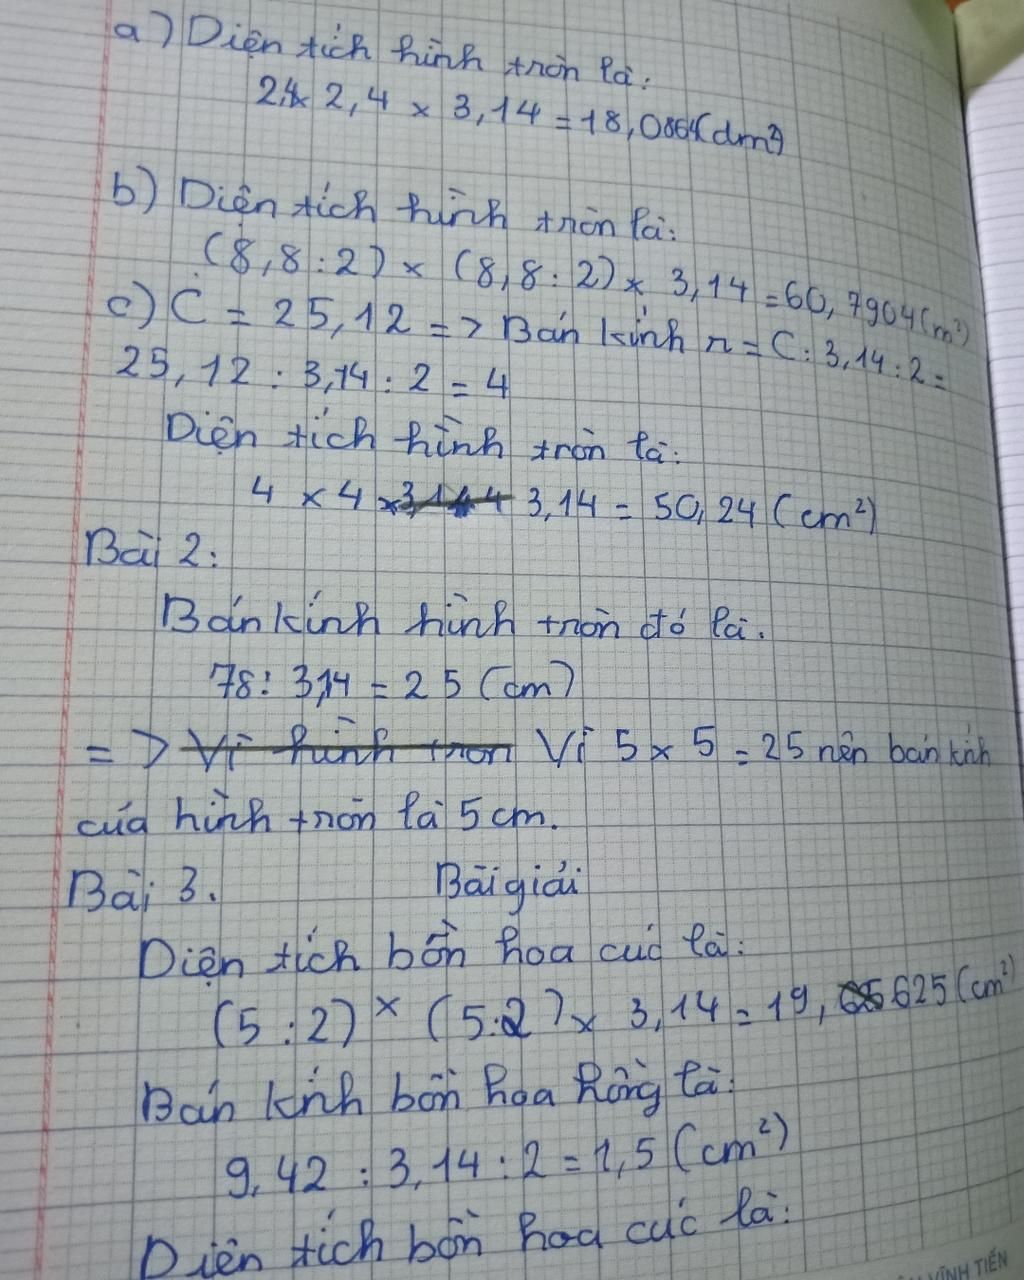 a) Diện tích hình tròn là:
2,4 x 2,4 x 3,14 = 18,0864 (dm²)
b) Diện tích hình tròn là:
(8,8 : 2) x (8,8 : 2) x 3,14 = 60,7904 (m²)
c) C = 25,12 => Bán kính r = C : 3,14 : 2 =
25,12 : 3,14 : 2 = 4
Diện tích hình tròn là:
4 x 4 x 3,14 = 50,24 (cm²)
Bài 2:
Bán kính hình tròn đó là.
78: 3,14 = 25 (cm)
=> Vì hình tròn Vì 5 x 5 = 25 nên bán kính
của hình tròn là 5 cm.
Bài 3. Bài giải
Diện tích bồn hoa cúc là:
(5 : 2) x (5:2) x 3,14 = 19,625 (cm²)
Bán kính bồn hoa hồng là:
9,42 : 3,14 : 2 = 1,5 (cm²)
Diện tích bồn hoa cúc là:
VĨNH TIẾN